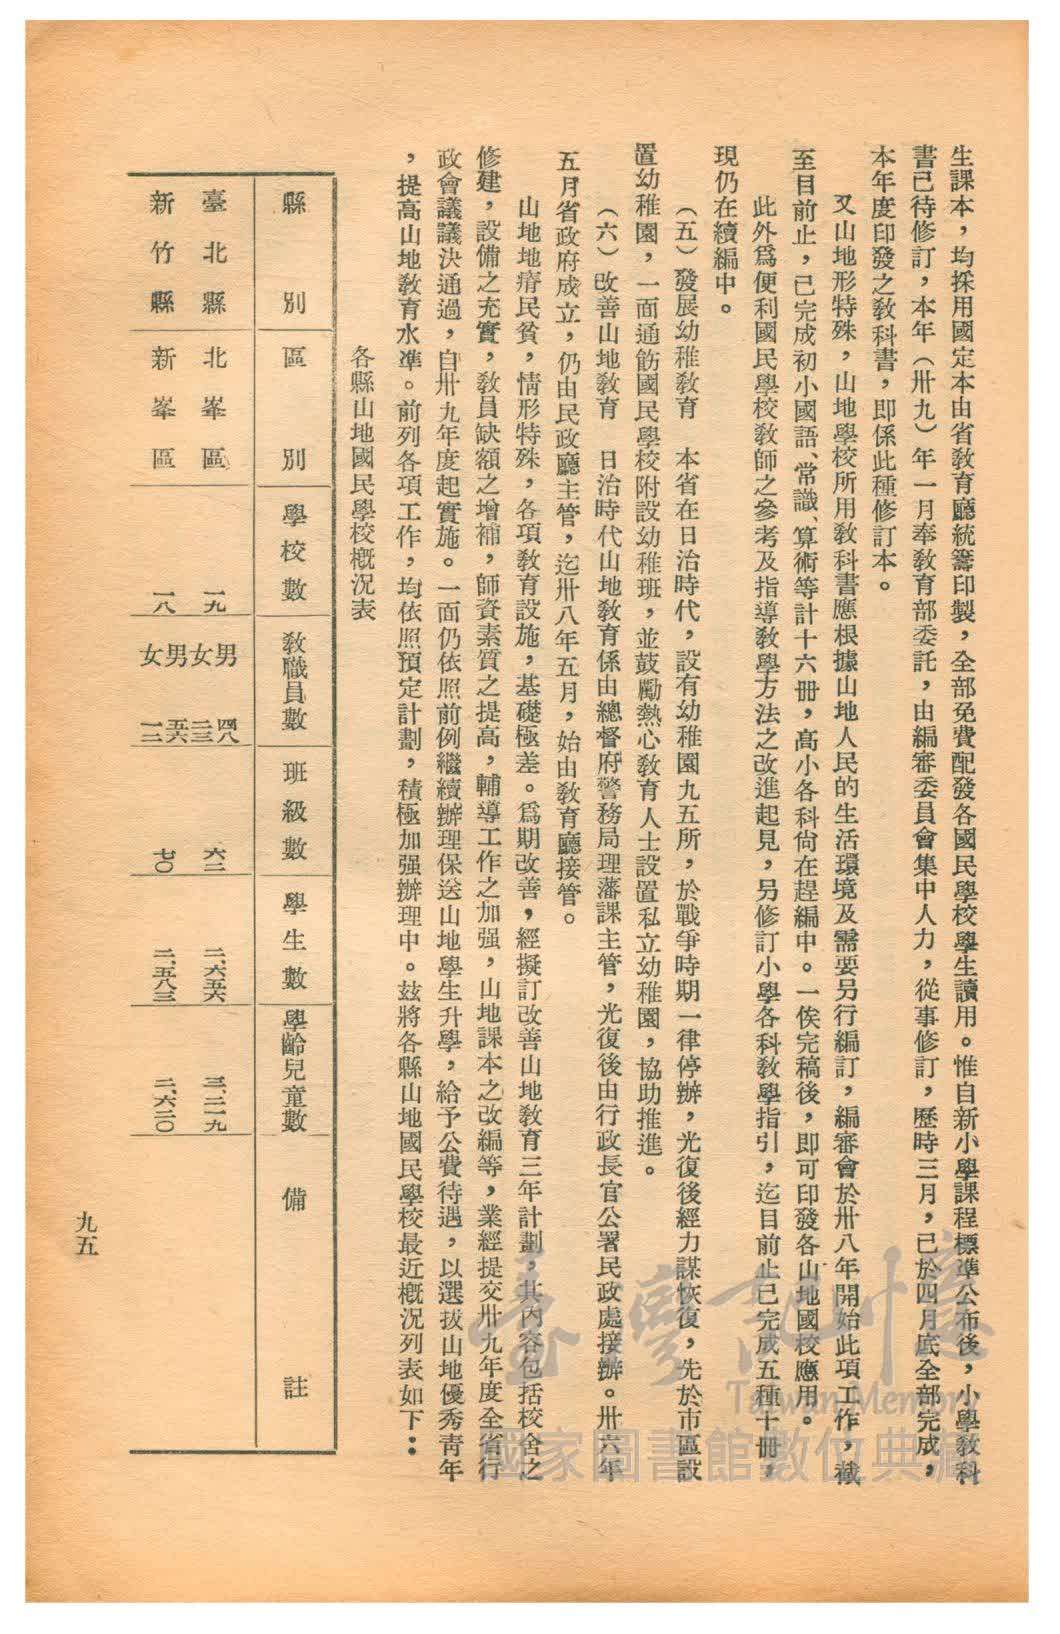 生課本，均採用國定本由省教育廳統籌印製，全部免費配發各國民學校學生讀用。惟自新小學課程標準公布後，小學教科
書已待修訂，本年（卅九）年一月奉教育部委託，由編審委員會集中人力，從事修訂，歷時三月，已於四月底全部完成，
本年度印發之教科書，即係此種修訂本。
又山地形特殊，山地學校所用教科書應根據山地人民的生活環境及需要另行編訂，編審會於卅八年開始此項工作，截
至目前止，已完成初小國語、常識、算術等計十六冊，高小各科尙在趕編中。一俟完稿後，即可印發各山地國校應用。
此外爲便利國民學校敎師之參考及指導敎學方法之改進起見，另修訂小學各科敎學指引，迄目前止已完成五種十冊，
現仍在續編中。
（五）發展幼稚敎育　本省在日治時代，設有幼稚園九五所，於戰爭時期一律停辦，光復後經力謀恢復，先於市區設
置幼稚園，一面通飭國民學校附設幼稚班，並鼓勵熱心敎育人士設置私立幼稚園，協助推進。
（六）改善山地敎育　日治時代山地敎育係由總督府警務局理藩課主管，光復後由行政長官公署民政處接辦。卅六年
五月省政府成立，仍由民政廳主管，迄卅八年五月，始由敎育廳接管。
山地地瘠民貧，情形特殊，各項敎育設施，基礎極差。爲期改善，經擬訂改善山地敎育三年計劃，其內容包括校舍之
修建，設備之充實，敎員缺額之增補，師資素質之提高，輔導工作之加强，山地課本之改編等，業經提交卅九年度全省行
政會議議決通過，自卅九年度起實施。一面仍依照前例繼續辦理保送山地學生升學，給予公費待遇，以選拔山地優秀靑年
，提高山地敎育水準。前列各項工作，均依照預定計劃，積極加强辦理中。玆將各縣山地國民學校最近槪況列表如下：
各縣山地國民學校槪況表
縣別　區別　學校數　敎職員數　班級數　學生數　學齡兒童數　備註
臺北縣　北峯區　一九　男四八　女二三　六二　二、六五六　三、三一九
新竹縣　新峯區　一八　男五六　女一二　七〇　二、五八三　二、六三〇
九五
臺灣記憶
Taiwan Memory
國家圖書館數位典藏